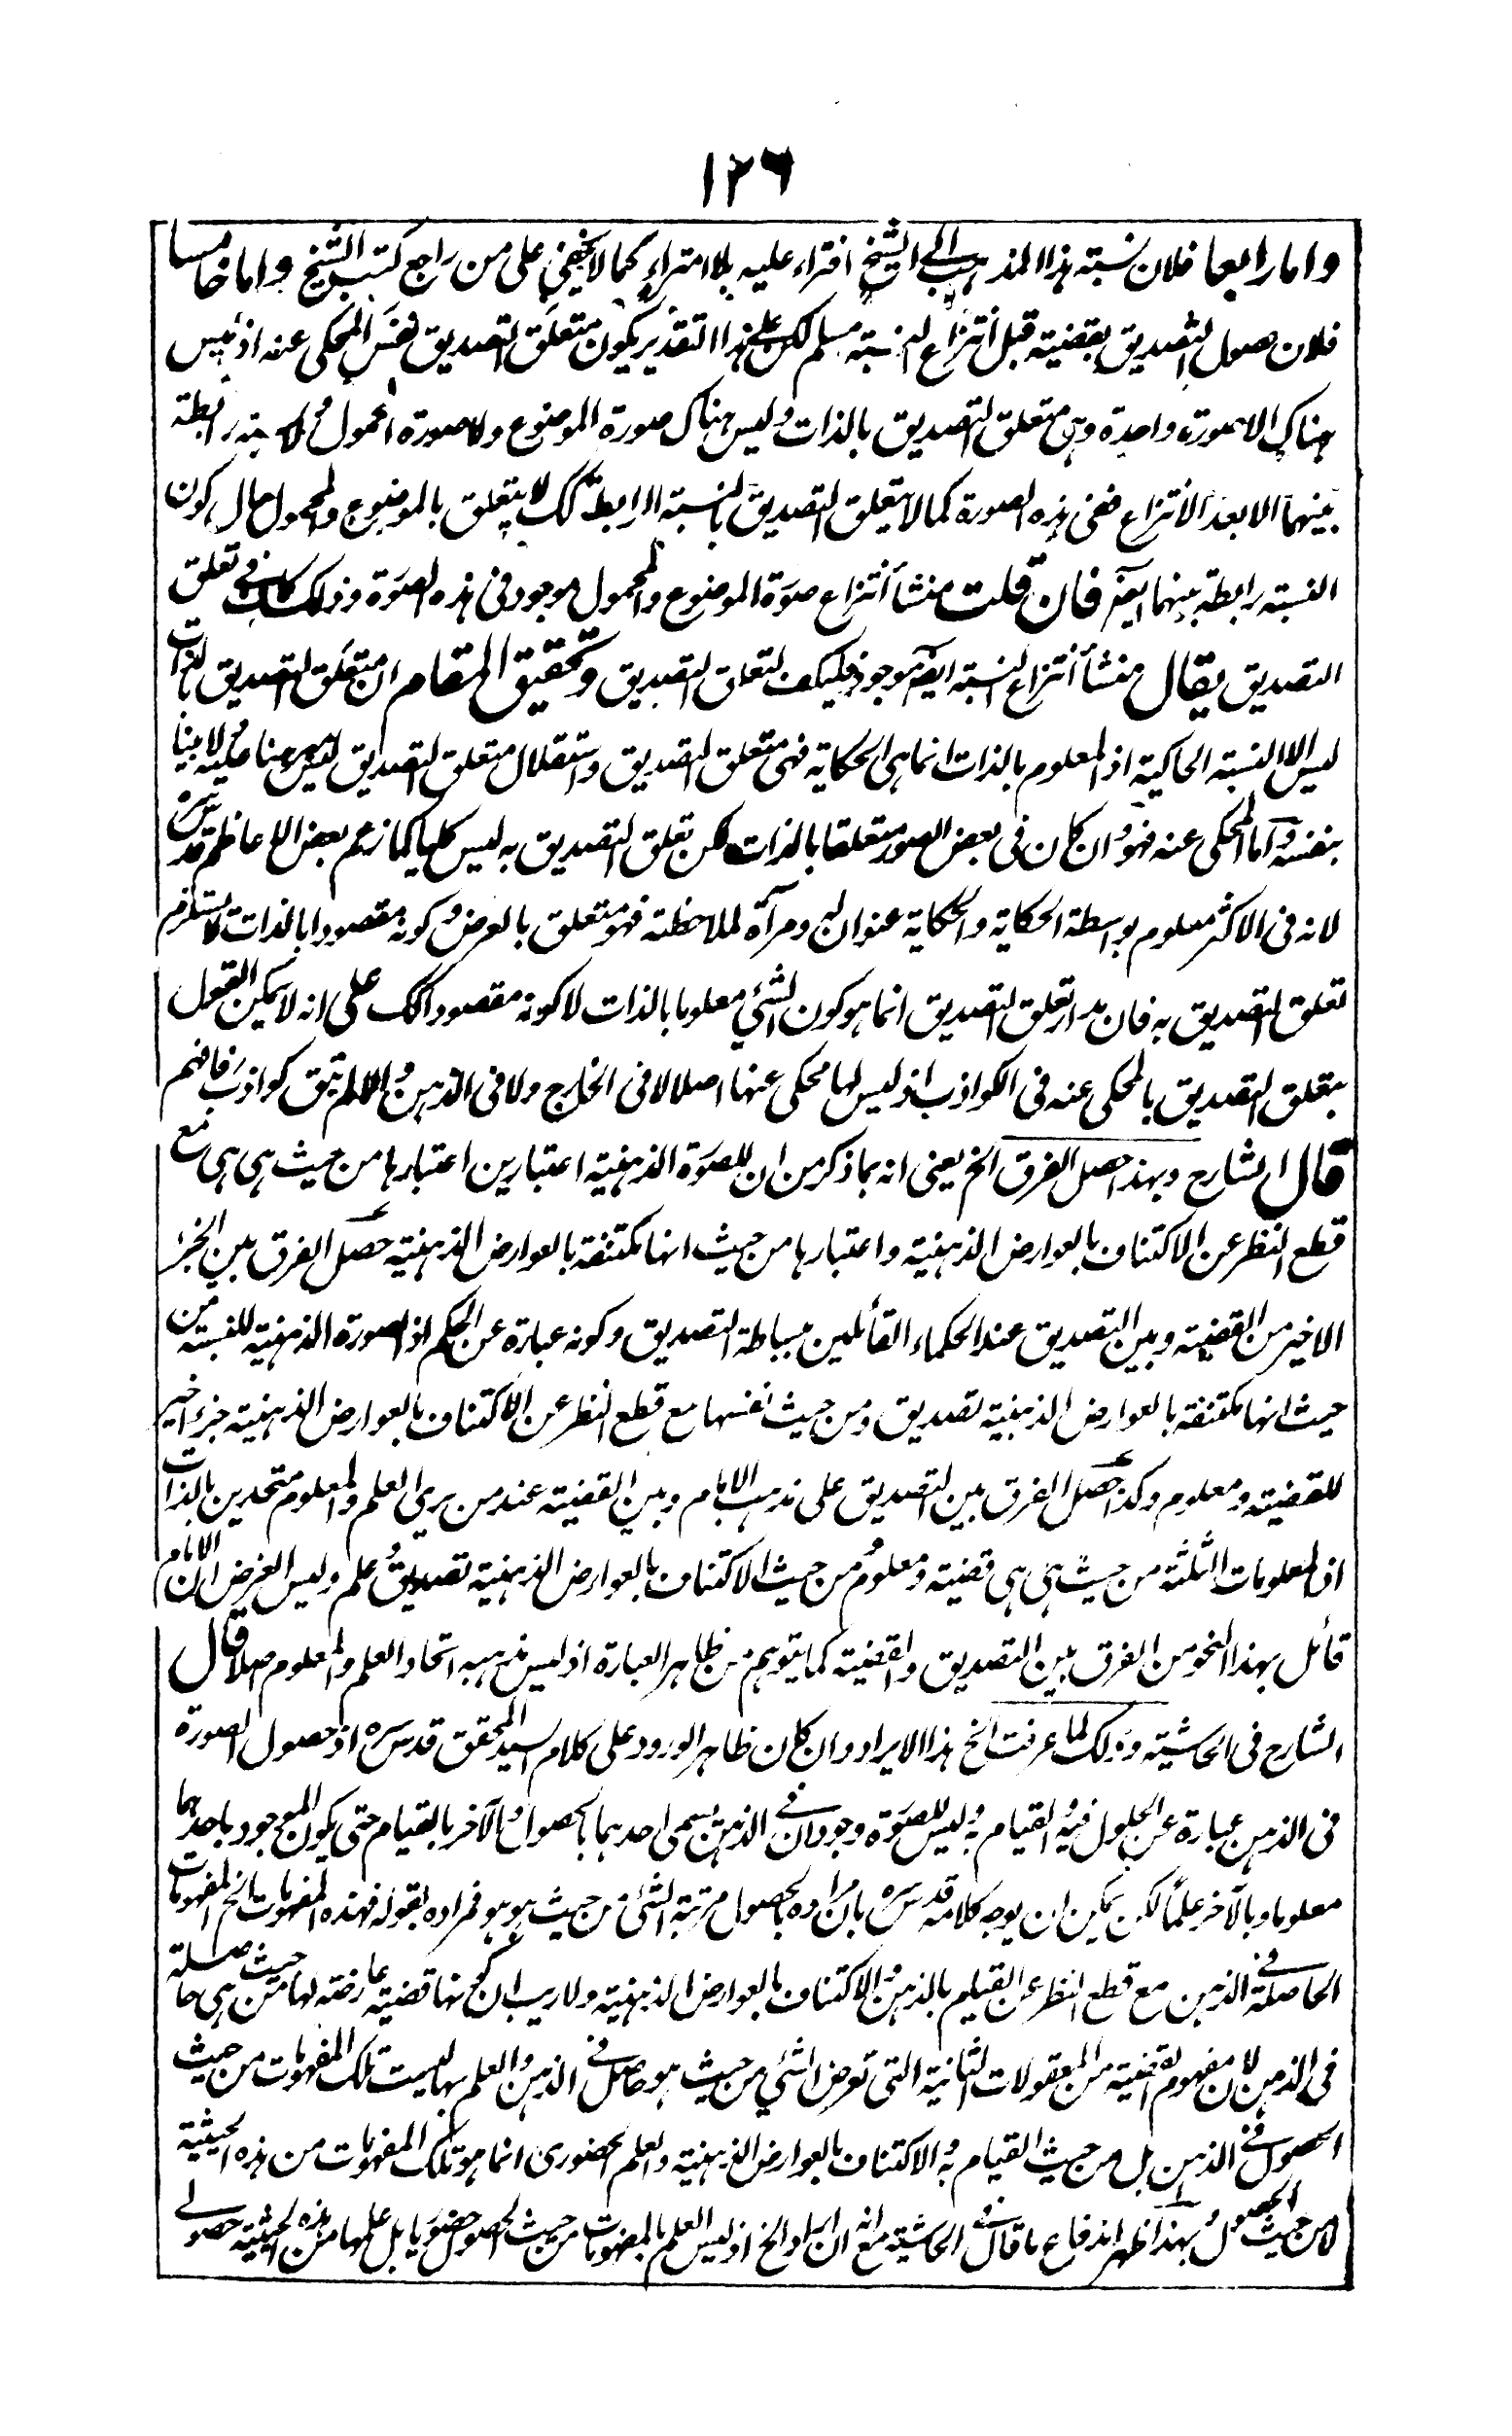 ١٢٦
واما رابعا فلان نسبته هذا المذهب الى الشيخ افتراء عليه بلا امتراء كما لا يخفى على من راجع كتب الشيخ واما خامسا
فلان حصول التصديق بقضية قبل انتزاع النسبة مسلم لكن على هذا التقدير يكون متعلق التصديق نفس المحكى عنه اذ ليس
هناك الا صورة واحدة وهى متعلق التصديق بالذات وليس هناك صورة الموضوع ولا صورة المحمول ولا نسبة رابطة
بينهما الا بعد الانتزاع ففى هذه الصورة كما لا يتعلق التصديق بالنسبة الرابطة كك لا يتعلق بالموضوع والمحمول حال كون
النسبة رابطة بينهما ايضا فان قلت منشأ انتزاع صورة الموضوع والمحمول موجود فى هذه الصورة وذلك كاف فى تعلق
التصديق يقال منشأ انتزاع النسبة ايضا موجود فليكف لتعلق التصديق وتحقيق المقام ان متعلق التصديق بالذات
ليس الا النسبة الحاكية اذ المعلوم بالذات انما هى الحكاية فهى متعلق التصديق واستقلال متعلق التصديق ليس مبنيا عليه ولا بينا
بنفسه واما المحكى عنه فهو وان كان فى بعض الصور متعلقا بالذات لكن تعلق التصديق به ليس كليا كما زعم بعض الاعاظم قدس سره
لانه فى الاكثر معلوم بواسطة الحكاية والحكاية عنوان له ومرآة لملاحظته فهو متعلق بالعرض وكونه مقصودا بالذات لا يستلزم
تعلق التصديق به فان مدار تعلق التصديق انما هو كون الشئ معلوما بالذات لا كونه مقصودا كك على انه لا يمكن القول
بتعلق التصديق بالمحكى عنه فى الكواذب اذ ليس لها محكى عنها اصلا لا فى الخارج ولا فى الذهن والا لم تبق كواذب فافهم
قال الشارح وبهذا حصل الفرق الخ يعنى انه بما ذكر من ان للصورة الذهنية اعتبارين اعتبارها من حيث هى هى مع
قطع النظر عن الاكتناف بالعوارض الذهنية واعتبارها من حيث انها مكتنفة بالعوارض الذهنية حصل الفرق بين الجزء
الاخير من القضية وبين التصديق عند الحكماء القائلين ببساطة التصديق وكونه عبارة عن الحكم اذ الصورة الذهنية للنسبة من
حيث انها مكتنفة بالعوارض الذهنية تصديق ومن حيث نفسها مع قطع النظر عن الاكتناف بالعوارض الذهنية جزء اخير
للقضية ومعلوم وكذا حصل الفرق بين التصديق على مذهب الامام وبين القضية عند من يرى العلم والمعلوم متحدين بالذات
اذ المعلومات الثلثة من حيث هى هى قضية ومعلوم ومن حيث الاكتناف بالعوارض الذهنية تصديق وعلم وليس الغرض ان الامام
قائل بهذا النحو من الفرق بين التصديق والقضية كما يتوهم من ظاهر العبارة اذ ليس مذهبه اتحاد العلم والمعلوم اصلا قال
الشارح فى الحاشية وذلك لما عرفت الخ هذا الايراد وان كان ظاهر الورود على كلام السيد المحقق قدس سره اذ حصول الصورة
فى الذهن عبارة عن الحلول فيه والقيام به وليس للصورة وجودان فى الذهن يسمى احدهما بالحصول والآخر بالقيام حتى يكون الموجود باحدهما
معلوما وبالآخر علما لكن يمكن ان يوجه كلامه قدس سره بان مراده بالحصول مرتبة الشئ من حيث هو هو فمراده بقوله فهذه المفهومات الخ المفهومات
الحاصلة فى الذهن مع قطع النظر عن القيام بالذهن والاكتناف بالعوارض الذهنية ولا ريب ان كونها قضية عارضة لها من حيث هى حاصلة
فى الذهن لان مفهوم القضية من المعقولات الثانية التى تعرض الشئ من حيث هو حاصل فى الذهن والعلم بها ليست تلك المفهومات من حيث
الحصول فى الذهن بل من حيث القيام به والاكتناف بالعوارض الذهنية والعلم الحضورى انما هو تلك المفهومات من هذه الحيثية
لا من حيث الحصول وبهذا ظهر اندفاع ما قال فى الحاشية مع انه ان اراد الخ اذ ليس العلم بالمفهومات من حيث الحصول حضوريا بل علمها من هذه الحيثية حصولى